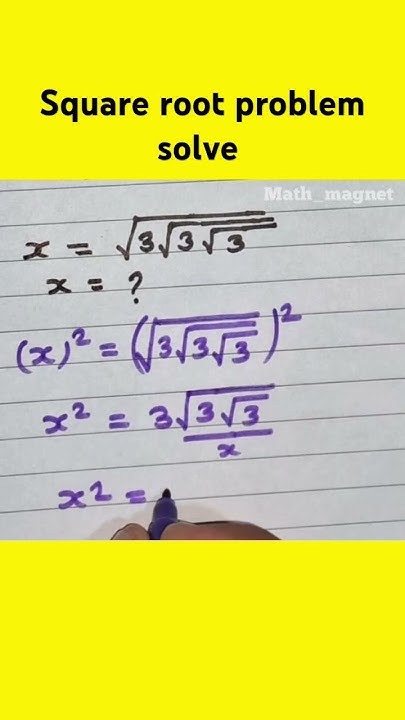 Square root problem
solve
Math_magnet
x = √(3√(3√3))
x = ?
(x)² = (√(3√(3√3)))²
x² = 3√(3√3)
x
x² =